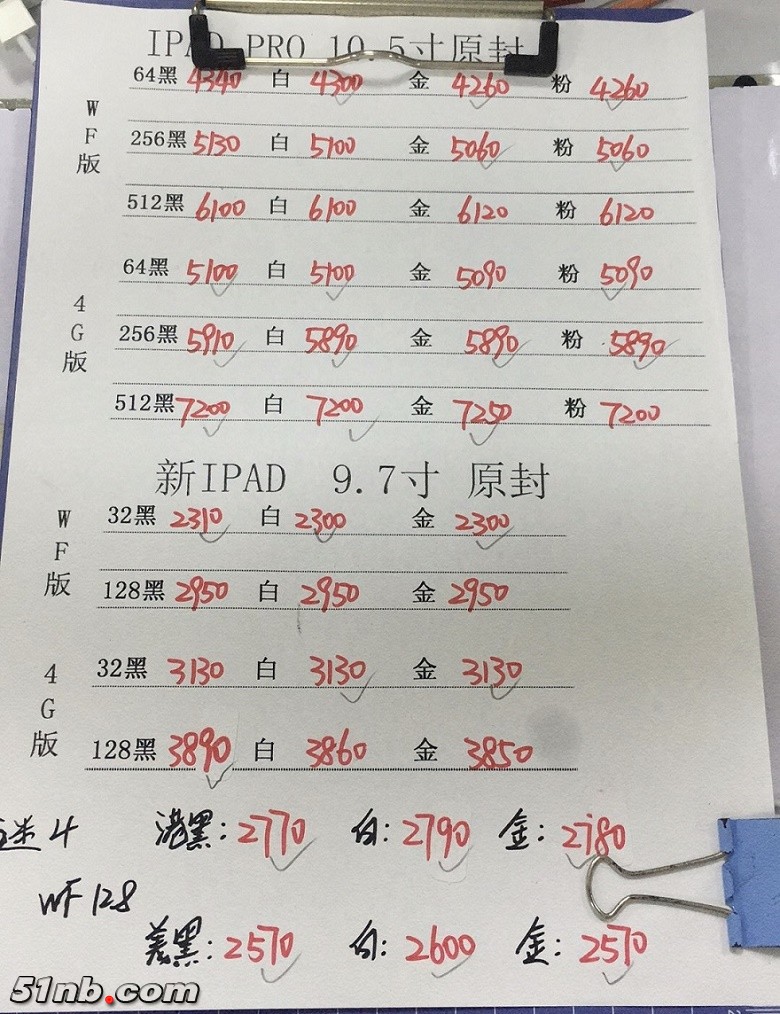 IPAD PRO 10.5寸原封
WF版
64黑 4340 白 4300 金 4260 粉 4260
256黑 5130 白 5100 金 5060 粉 5060
512黑 6100 白 6100 金 6120 粉 6120
4G版
64黑 5100 白 5100 金 5090 粉 5090
256黑 5910 白 5890 金 5890 粉 5890
512黑 7200 白 7200 金 7250 粉 7200
新IPAD 9.7寸 原封
WF版
32黑 2310 白 2300 金 2300
128黑 2950 白 2950 金 2950
4G版
32黑 3130 白 3130 金 3130
128黑 3890 白 3860 金 3850
迷4 港黑: 2770 白: 2790 金: 2780
WF 128
美黑: 2570 白: 2600 金: 2570
51nb.com